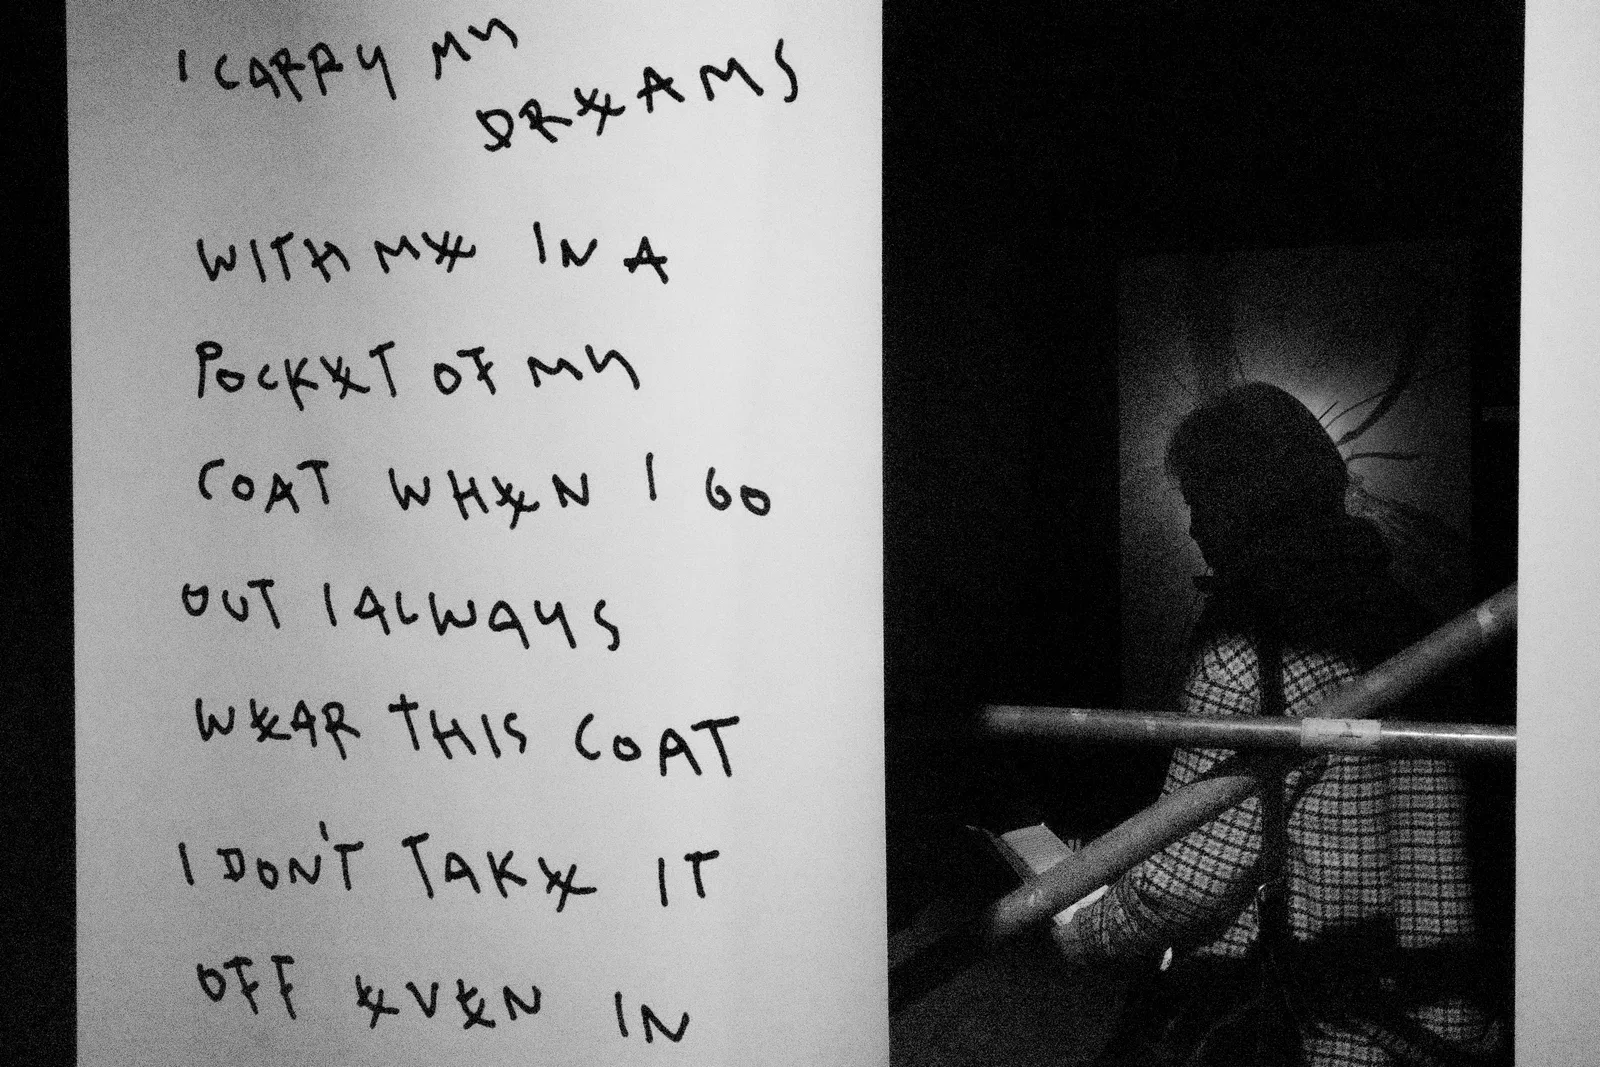 I CARRY MY
DREAMS
WITH ME IN A
POCKET OF MY
COAT WHEN I GO
OUT I ALWAYS
WEAR THIS COAT
I DON'T TAKE IT
OFF EVEN IN